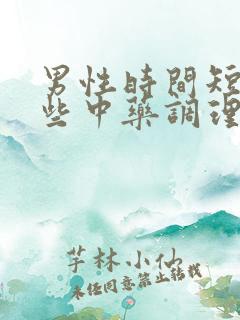 男性時間短
些中藥調理
芋林小仙
未经同意禁止转载